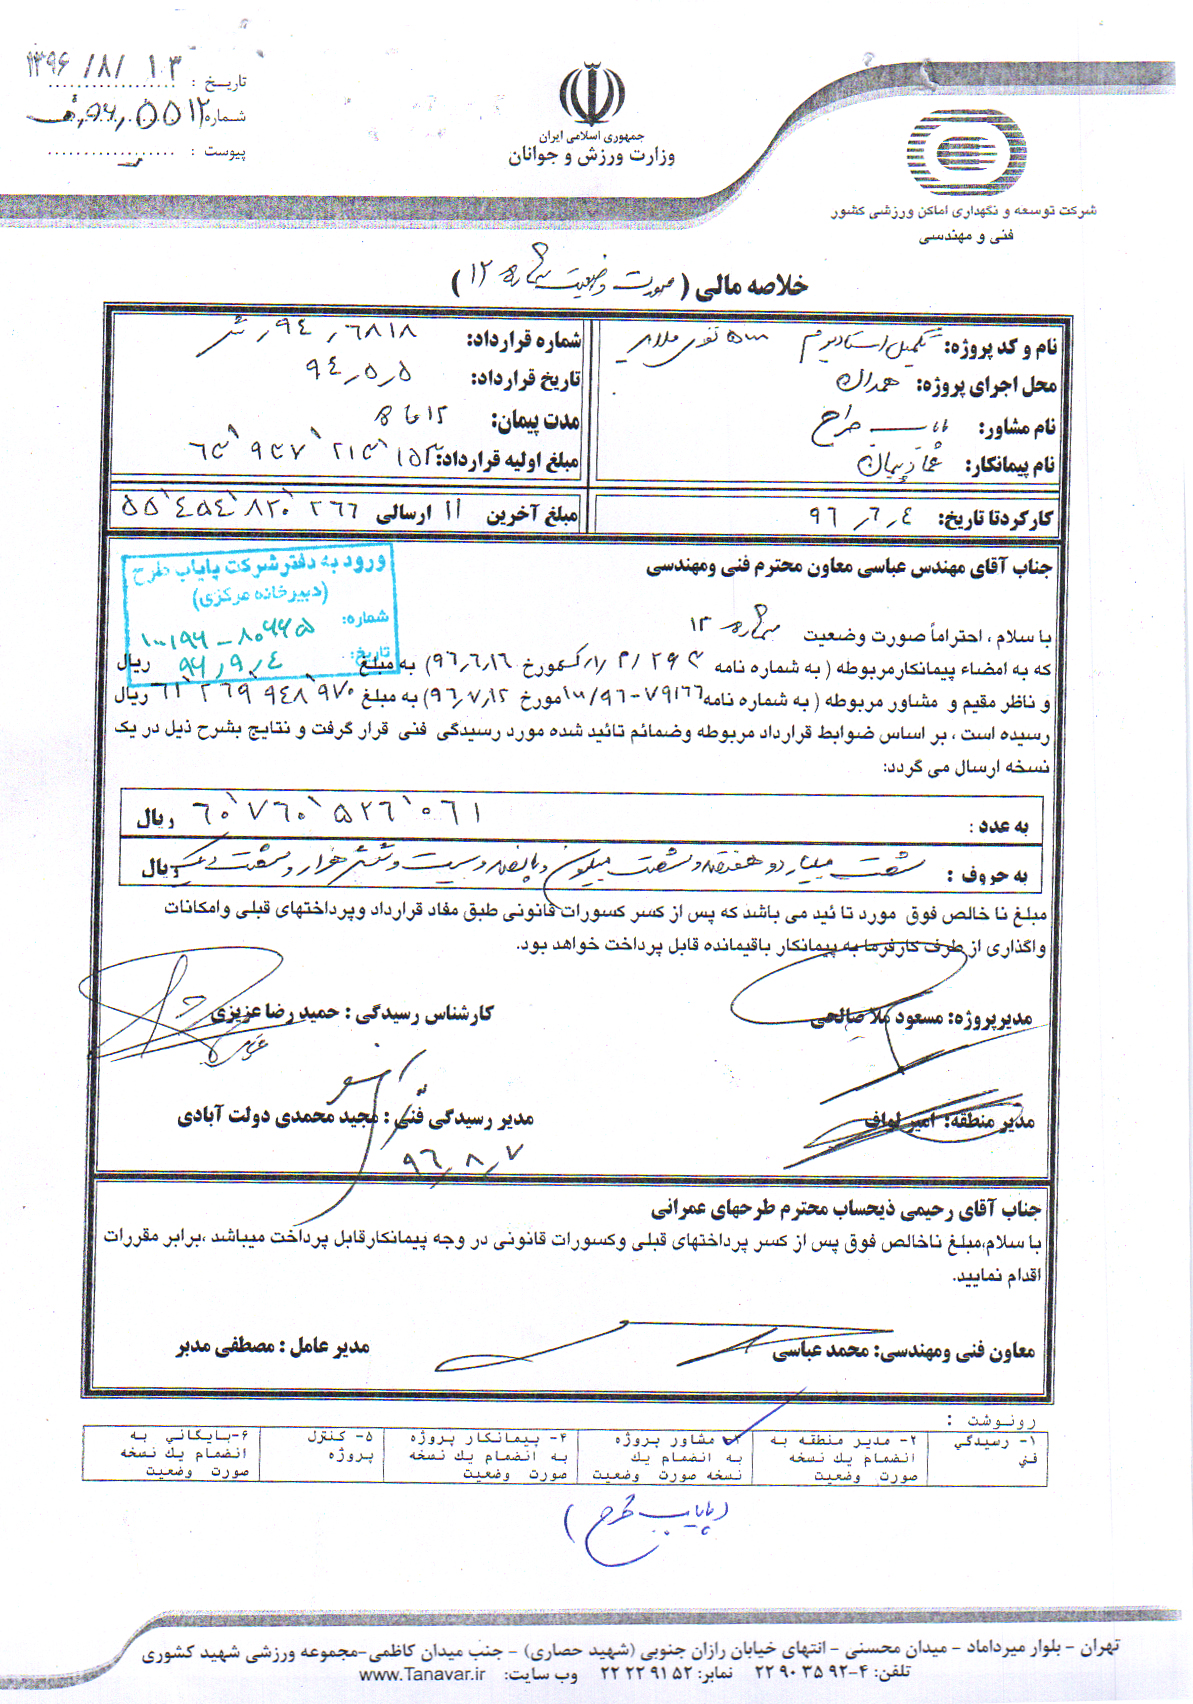 تاریخ : ۱۳۹۶/۸/۱۰۳
شماره
پیوست :
جمهوری اسلامی ایران
وزارت ورزش و جوانان
شرکت توسعه و نگهداری اماکن ورزشی کشور
فنی و مهندسی
خلاصه مالی ( صورت وضعیت شماره ۱۲ )
نام و کد پروژه: تکمیل استادیوم
محل اجرای پروژه: همدان
نام مشاور: پایاب طرح
نام پیمانکار: عماد پیمان
شماره قرارداد: ۹۴٫۶۸۱۸
تاریخ قرارداد: ۹۴٫۵٫۵
مدت پیمان: ۱۲ ماه
مبلغ اولیه قرارداد:
کارکردتا تاریخ: ۹۶٫۶٫۴
مبلغ آخرین ۱۱ ارسالی ۵۵٬۴۵۴٬۸۲۰٬۲۶۶
ورود به دفتر شرکت پایاب طرح
(دبیرخانه مرکزی)
شماره: ۱۰۰۱۹۶-۸۰۶۶۵
تاریخ: ۹۶٫۹٫۴
جناب آقای مهندس عباسی معاون محترم فنی ومهندسی
با سلام ، احتراماً صورت وضعیت شماره ۱۲
که به امضاء پیمانکارمربوطه ( به شماره نامه مورخ ۹۶٫۶٫۱۶) به مبلغ ریال
و ناظر مقیم و مشاور مربوطه ( به شماره نامه ۱۰۰/۹۶-۷۹۱۶۶ مورخ ۹۶٫۷٫۱۲) به مبلغ ۶۱٬۲۶۹٬۹۴۸٬۹۷۰ ریال
رسیده است ، بر اساس ضوابط قرارداد مربوطه وضمائم تائید شده مورد رسیدگی فنی قرار گرفت و نتایج بشرح ذیل در یک
نسخه ارسال می گردد:
به عدد : ۶۰٬۷۶۰٬۵۲۶٬۰۶۱ ریال
به حروف : شصت میلیارد و هفتصد و شصت میلیون و پانصد و بیست و شش هزار و شصت و یک ریال
مبلغ نا خالص فوق مورد تا ئید می باشد که پس از کسر کسورات قانونی طبق مفاد قرارداد وپرداختهای قبلی وامکانات
واگذاری از طرف کارفرما به پیمانکار باقیمانده قابل پرداخت خواهد بود.
مدیرپروژه: مسعود ملا صالحی
کارشناس رسیدگی : حمید رضا عزیزی
مدیر منطقه: امیر لواف
مدیر رسیدگی فنی : مجید محمدی دولت آبادی
۹۶٫۸٫۷
جناب آقای رحیمی ذیحساب محترم طرحهای عمرانی
با سلام،مبلغ ناخالص فوق پس از کسر پرداختهای قبلی وکسورات قانونی در وجه پیمانکارقابل پرداخت میباشد ،برابر مقررات
اقدام نمایید.
معاون فنی ومهندسی: محمد عباسی
مدیر عامل : مصطفی مدبر
رونوشت :
۱- رسیدگي فني
۲- مدیر منطقه به انضمام یك نسخه صورت وضعیت
۳- مشاور پروژه به انضمام یك نسخه صورت وضعیت
۴- پیمانكار پروژه به انضمام یك نسخه صورت وضعیت
۵- كنترل پروژه
۶-بایگاني به انضمام یك نسخه صورت وضعیت
( پایاب طرح )
تهران - بلوار میرداماد - میدان محسنی - انتهای خیابان رازان جنوبی (شهید حصاری) - جنب میدان کاظمی-مجموعه ورزشی شهید کشوری
تلفن: ۴-۹۲ ۳۵ ۹۰ ۲۲ نمابر: ۵۲ ۹۱ ۲۲ ۲۲ وب سایت: www.Tanavar.ir